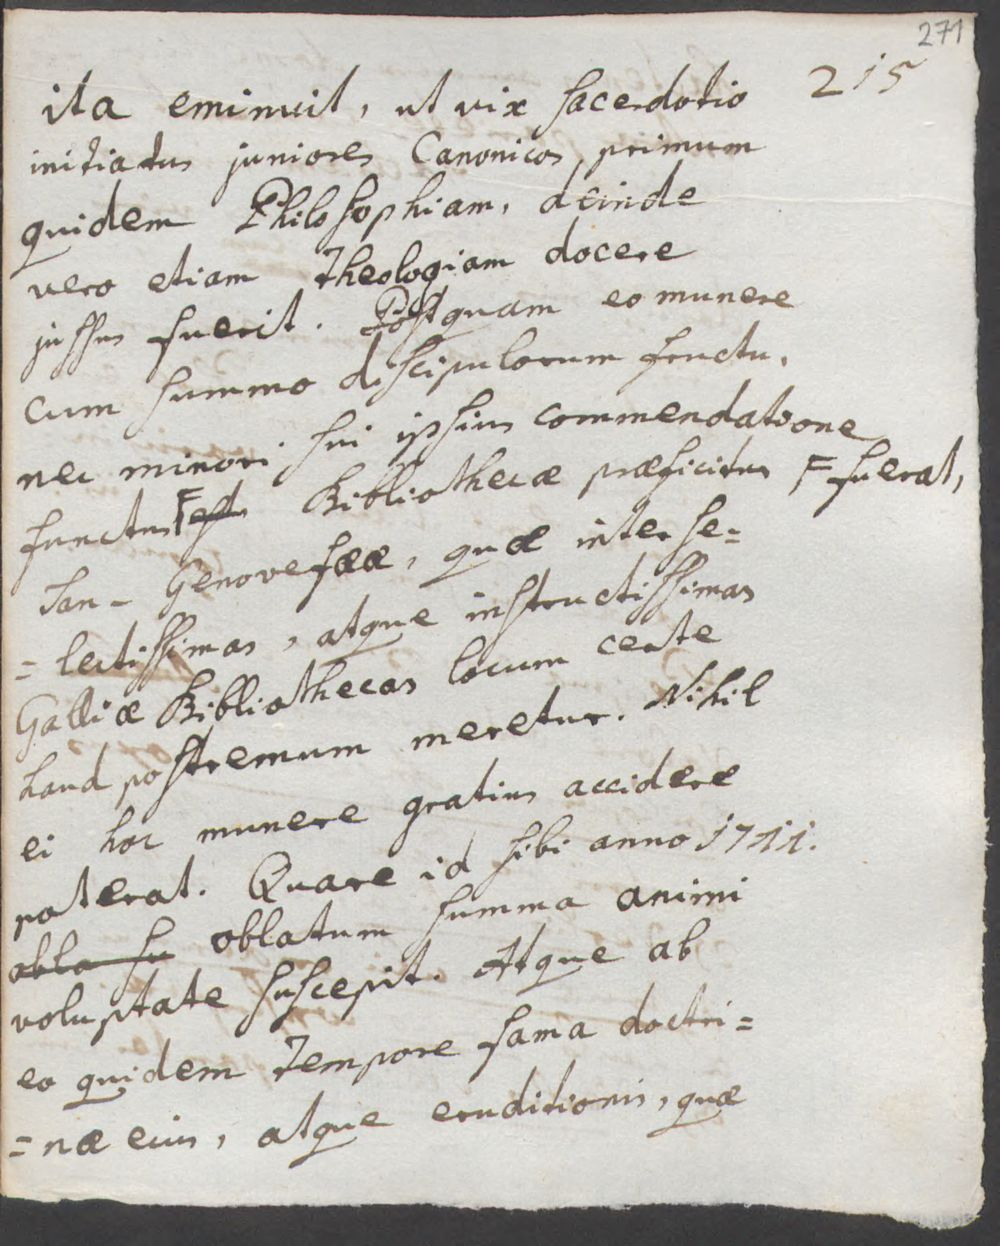 271
215
ita eminuit, ut vix sacerdotio
initiatus juniores Canonicos, primum
quidem Philosophiam, deinde
vero etiam Theologiam docere
jussus fuerit. Postquam eo munere
cum summo discipulorum fructu,
nec minori sui ipsius commendatione
functus F est Bibliothecæ præficitur F fuerat,
San- Genovefææ, quæ inter se=
=lectissimas, atque instructissimas
Galliæ Bibliothecas locum certe
haud postremum meretur. Nihil
ei hoc munere gratius accidere
poterat. Quare id sibi anno 1711.
obla su oblatum summa animi
voluptate suscepit. Atque ab
eo quidem tempore fama doctri=
=næ eius, atque eruditionis, quæ